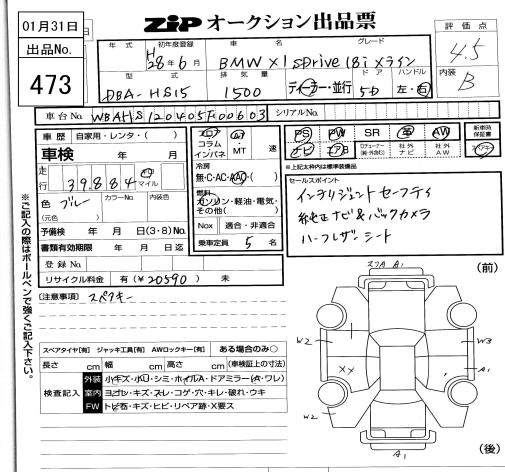 01月31日
出品No.
473
ZIP オークション出品票
評価点
4.5
内装
B
年式 初年度登録 車名 グレード
H28年6月 BMW X1 sDrive 18i Xライン
型式 排気量 ドア ハンドル
DBA-HS15 1500 ディーラー・並行 5D 左・右
車台No. WBAHS120405F00603 シリアルNo.
車歴 自家用・レンタ・( )
車検 年 月
走行 39,884 km マイル
色 ブルー カラーNo. 内装色
(元色)
予備検 年 月 日(3・8)No.
書類有効期限 年 月 日迄
登録No.
リサイクル料金 有(¥20590) 未
フロア コラム インパネ AT MT 速
冷房
無・C・AC・AAC・( )
燃料
ガソリン・軽油・電気・その他( )
Nox 適合・非適合
乗車定員 5 名
PS PW SR 革 AW
ナビ エアB 社外ナビ 社外AW
新車時保証書
スペアキー
※上記太枠内は標準装備品
セールスポイント
インテリジェントセーフティ
純正ナビ&バックカメラ
ハーフレザーシート
(注意事項) スペアキー
※ご記入の際はボールペンで強くご記入下さい。
スペアタイヤ[有] ジャッキ工具[有] AWロックキー[有] ある場合のみ○
長さ cm 幅 cm 高さ cm (車検証上の寸法)
検査記入
外装 小キズ・小凹・シミ・ホイルA・ドアミラー(A・ワレ)
室内 ヨゴレ・キズ・スレ・コゲ・穴・キレ・破れ・ウキ
FW トビ石・キズ・ヒビ・リペア跡・X要ス
スリA A1
(前)
W2
W3
XX
A1
W2
A1
(後)